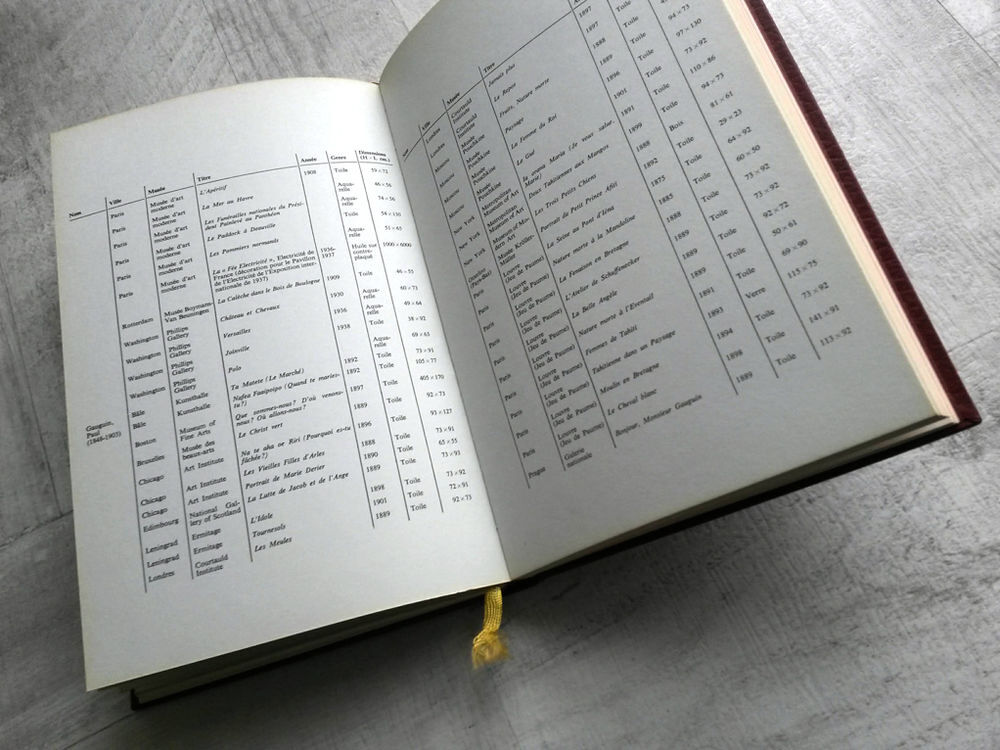 Nom Ville Musée Titre Année Genre Dimensions
(H - L. cm.)
Paris Musée d'art L'Apéritif 1908 Toile 59×72
moderne
Paris Musée d'art La Mer au Havre Aqua- 46×56
moderne relle
Paris Musée d'art Les Funérailles nationales du Prési- Aqua- 74×56
moderne dent Painlevé au Panthéon relle
Paris Musée d'art Le Paddock à Deauville Toile 54×130
moderne
Paris Musée d'art Les Pommiers normands Aqua- 51×65
moderne relle
Paris Musée d'art La « Fée Electricité », Electricité de 1936- Huile sur 1000×6000
moderne France (décoration pour le Pavillon 1937 contre-
de l'Electricité de l'Exposition inter- plaqué
nationale de 1937)
Rotterdam Musée Boymans- La Calèche dans le Bois de Boulogne 1909 Toile 46×55
Van Beuningen
Washington Phillips Château et Chevaux 1930 Aqua- 60×73
Gallery relle
Washington Phillips Versailles 1936 Aqua- 49×64
Gallery relle
Washington Phillips Joinville 1938 Toile 38×92
Gallery
Washington Phillips Polo Aqua- 69×65
Gallery relle
Gauguin, Bâle Kunsthalle Ta Matete (Le Marché) 1892 Toile 73×91
Paul
(1848-1903)
Bâle Kunsthalle Nafea Faaipoipo (Quand te maries- 1892 Toile 105×77
tu?)
Boston Museum of Que sommes-nous? D'où venons- 1897 Toile 405×170
Fine Arts nous? Où allons-nous?
Bruxelles Musée des Le Christ vert 1889 Toile 92×73
beaux-arts
Chicago Art Institute Na te aha oe Riri (Pourquoi es-tu 1896 Toile 93×127
fâchée?)
Chicago Art Institute Les Vieilles Filles d'Arles 1888 Toile 73×91
Chicago Art Institute Portrait de Marie Derier 1890 Toile 65×55
Edimbourg National Gal- La Lutte de Jacob et de l'Ange 1889 Toile 73×93
lery of Scotland
Leningrad Ermitage L'Idole 1898 Toile 73×92
Leningrad Ermitage Tournesols 1901 Toile 72×91
Londres Courtauld Les Meules 1889 Toile 92×73
Institute
Ville Musée Titre
Londres Courtauld Jamais plus 1897 Toile
Institute
Londres Courtauld Le Repos 1897 Toile
Institute
Moscou Musée Fruits, Nature morte 1888 Toile
Pouchkine
Moscou Musée Paysage 1889 Toile 94×73
Pouchkine
Moscou Musée La Femme du Roi 1896 Toile 97×130
Pouchkine
Moscou Musée Le Gué 1901 Toile 73×92
Pouchkine
New York Metropolitan Ia orana Maria (Je vous salue, 1891 Toile 110×86
Museum of Art Marie)
New York Metropolitan Deux Tahitiennes aux Mangos 1899 Toile 94×73
Museum of Art
New York Museum of Mo- Les Trois Petits Chiens 1888 Bois
dern Art
Otterlo Musée Kröller- Portrait du Petit Prince Atiti 1892 Toile 29×23
(Pays-Bas) Müller
Paris Louvre La Seine au Pont d'Iéna 1875 Toile 64×92
(Jeu de Paume)
Paris Louvre Nature morte à la Mandoline 1885 Toile 60×50
(Jeu de Paume)
Paris Louvre La Fenaison en Bretagne 1888 Toile 73×92
(Jeu de Paume)
Paris Louvre L'Atelier de Schuffenecker 1889 Toile
(Jeu de Paume)
Paris Louvre La Belle Angèle 1889 Toile
(Jeu de Paume)
Paris Louvre Nature morte à l'Eventail 1889 Toile 50×61
(Jeu de Paume)
Paris Louvre Femmes de Tahiti 1891 Toile 69×90
(Jeu de Paume)
Paris Louvre Tahitienne dans un Paysage 1893 Verre 115×75
(Jeu de Paume)
Paris Louvre Moulin en Bretagne 1894 Toile 73×92
(Jeu de Paume)
Paris Louvre Le Cheval blanc 1898 Toile 141×91
(Jeu de Paume)
Prague Galerie Bonjour, Monsieur Gauguin 1889 Toile 113×92
nationale